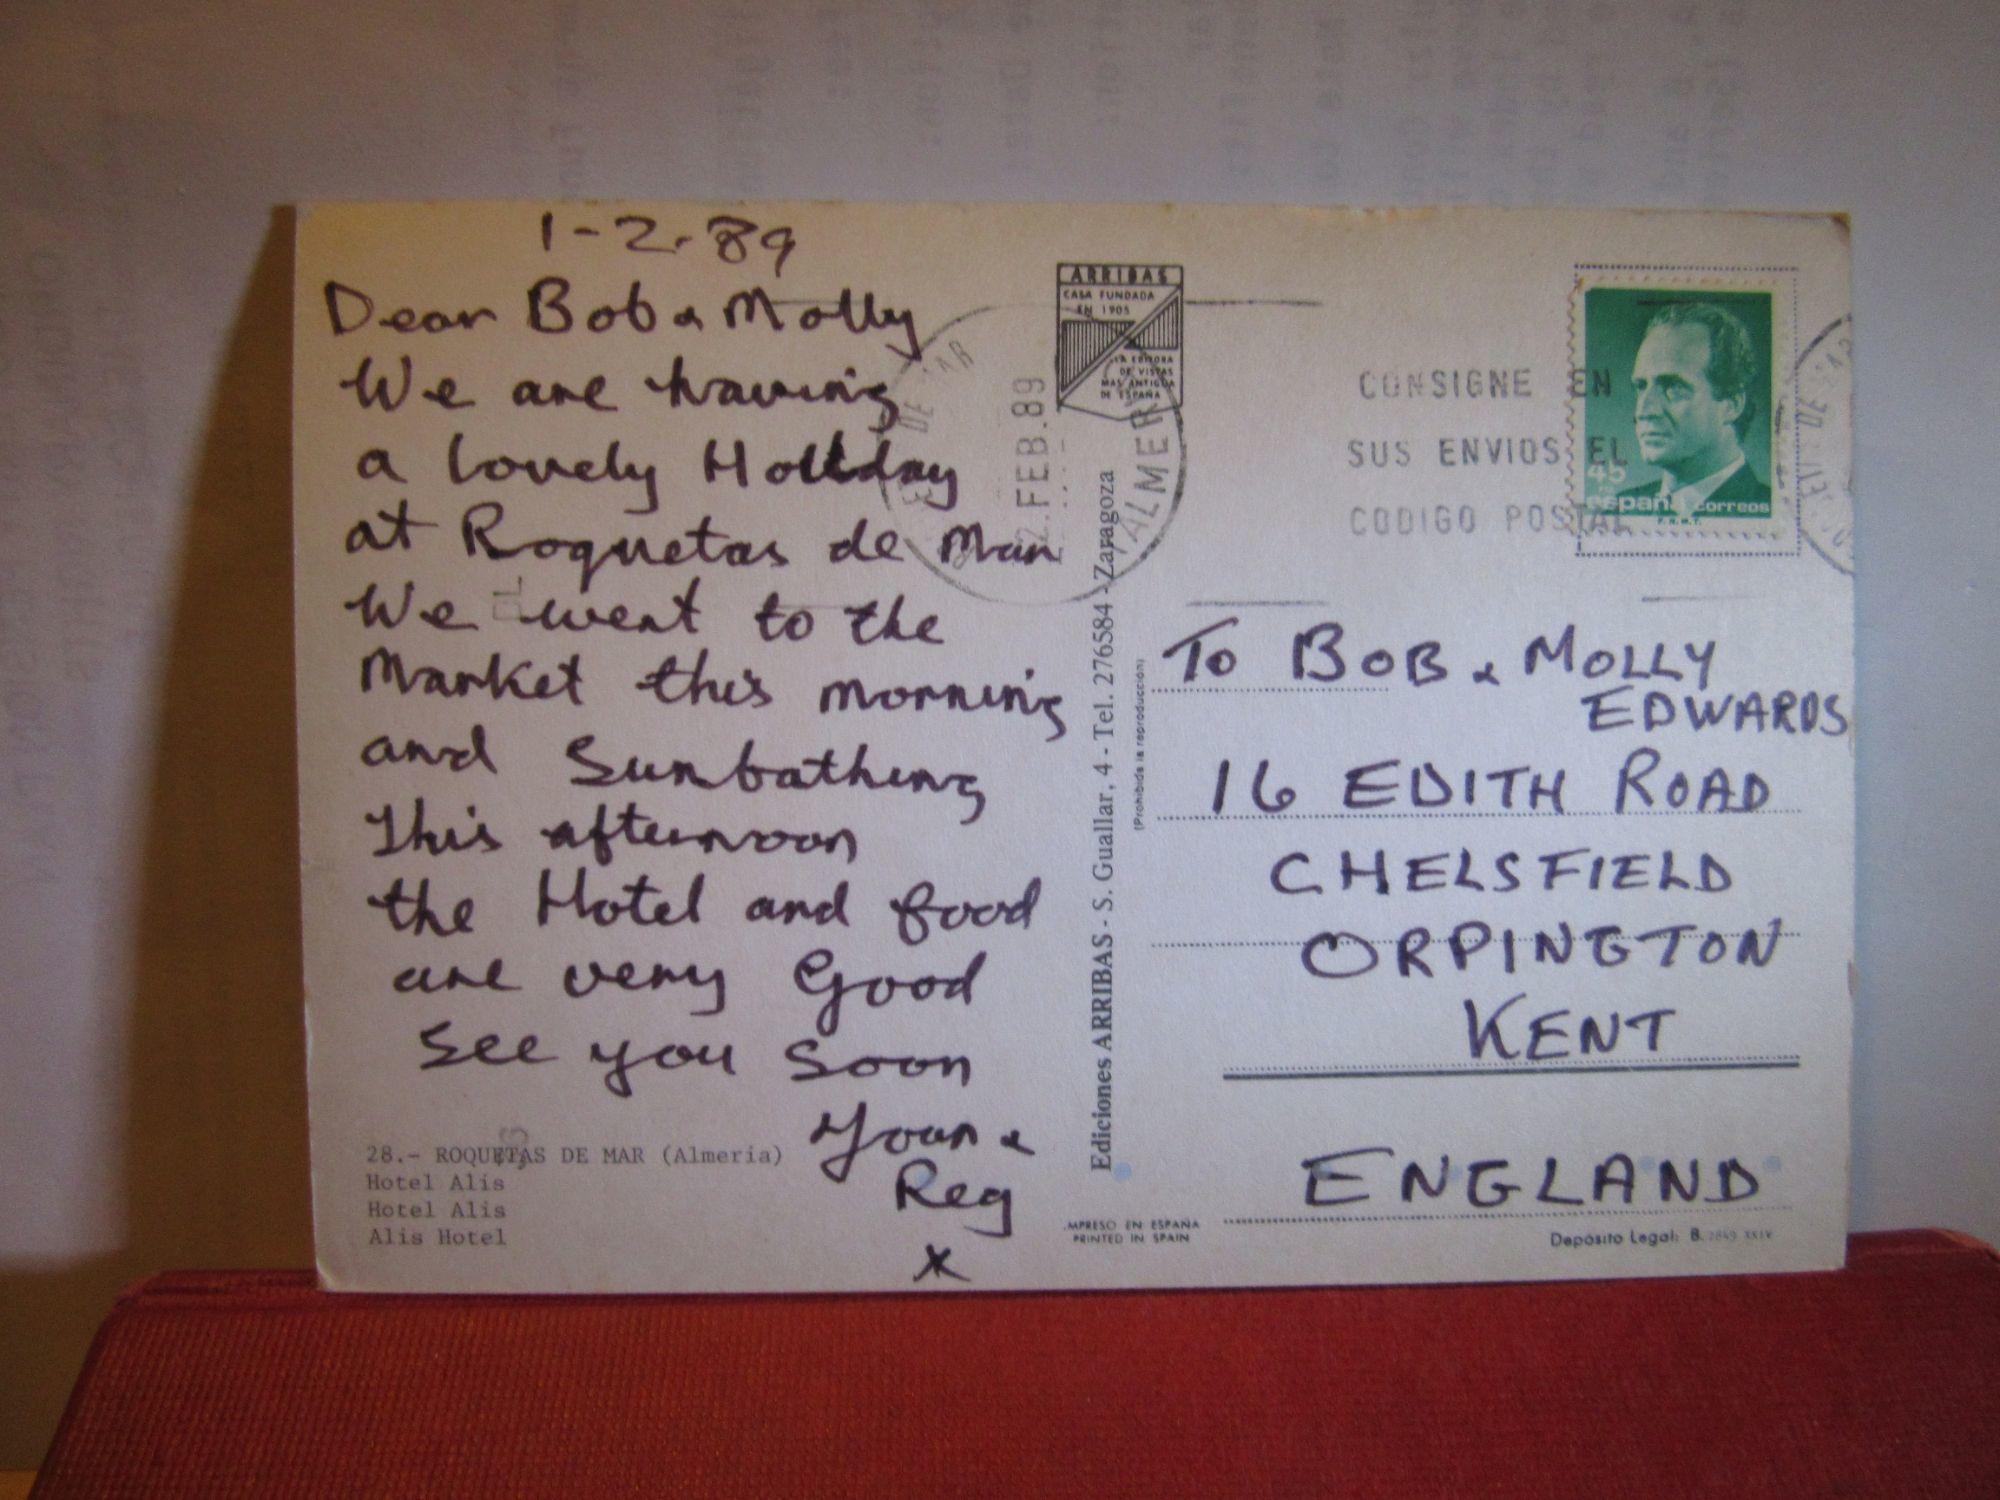 1-2-89
Dear Bob & Molly
We are having
a lovely Holiday
at Roquetas de Mar
We went to the
Market this morning
and Sunbathing
This afternoon
the Hotel and food
are very Good
See you Soon
&
Reg
x
28.- ROQUETAS DE MAR (Almería)
Hotel Alis
Hotel Alis
Alis Hotel
ARRIBAS
CASA FUNDADA
EN 1905
LA EDITORA
DE VISTAS
MAS ANTIGUA
DE ESPAÑA
DE MAR
2.FEB.89
ALMER
Ediciones ARRIBAS - S. Guallar, 4 - Tel. 276584 - Zaragoza
(Prohibida la reproducción)
IMPRESO EN ESPAÑA
PRINTED IN SPAIN
CONSIGNE EN
SUS ENVIOS EL
CODIGO POSTAL
45
españa correos
F.N.M.T.
To BOB & MOLLY
EDWARDS
16 EDITH ROAD
CHELSFIELD
ORPINGTON
KENT
ENGLAND
Depósito Legal: B. 2849 XXIV